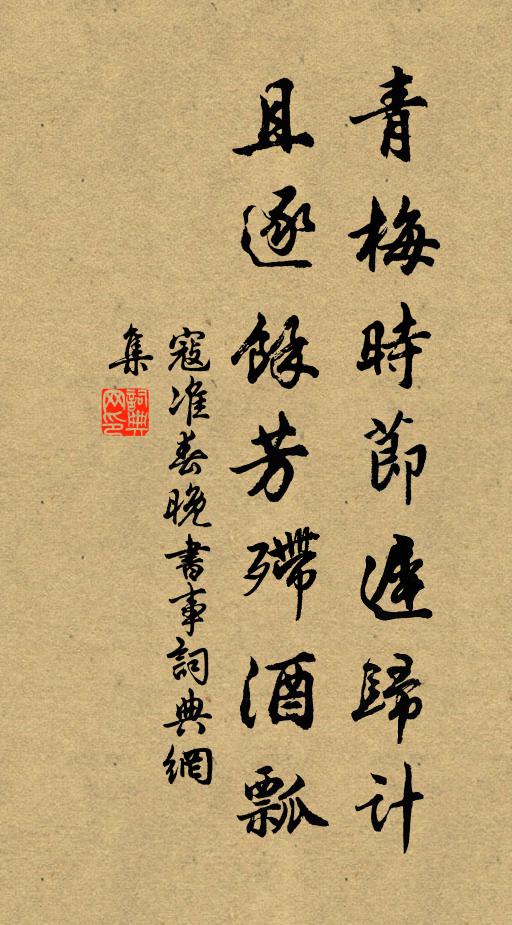 青梅時節遲歸計
且逐餘芳殢酒瓢
寇准春晚書事詞典網
集
詞典網印